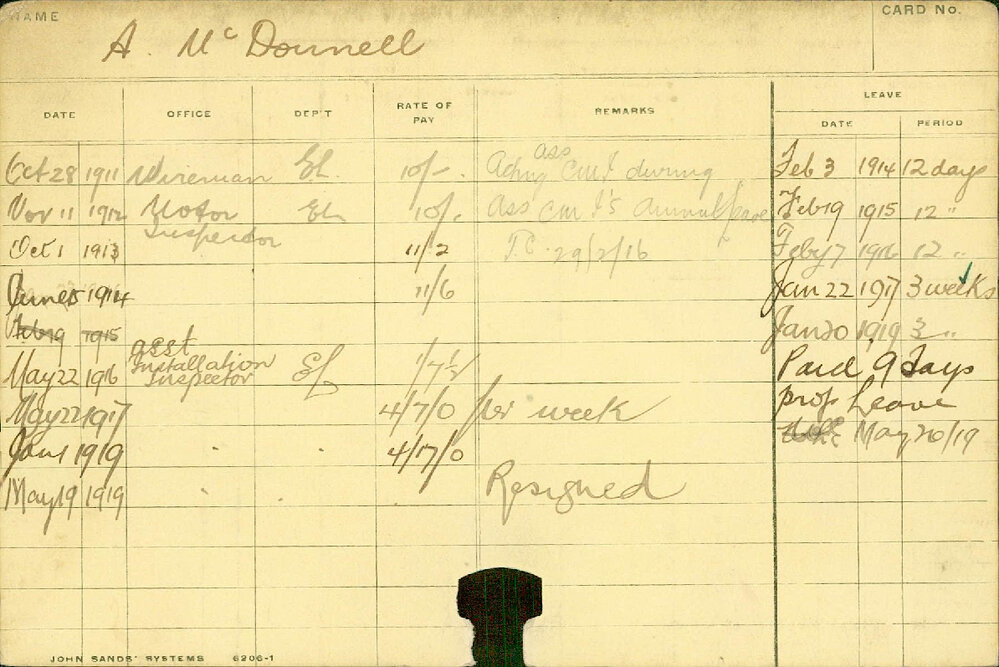 NAME
CARD No.
A. McDonnell
DATE OFFICE DEP'T RATE OF PAY REMARKS LEAVE
DATE PERIOD
Oct 28 1911 Wireman El 10/-. ass
Feb 3 1914 12 days
during
Nov 11 1912 Motor El 10/. Ass annual leave Feb 19 1915 12 "
Inspector
Oct 1 1913 11/2 T.C. 29/2/16 Feby 7 1916 12 "
June 1914 11/6 Jan 22 1917 3 weeks
Feb 19 1915 Jan 20 1919 3 "
asst
May 22 1916 Installation El 1/7½ Paid 9 days
Inspector
May 22 1917 4/7/0 per week prop Leave
Jan 1 1919 . . 4/17/0 May 20/19
May 19 1919 . . . Resigned
JOHN SANDS' SYSTEMS 6206-1